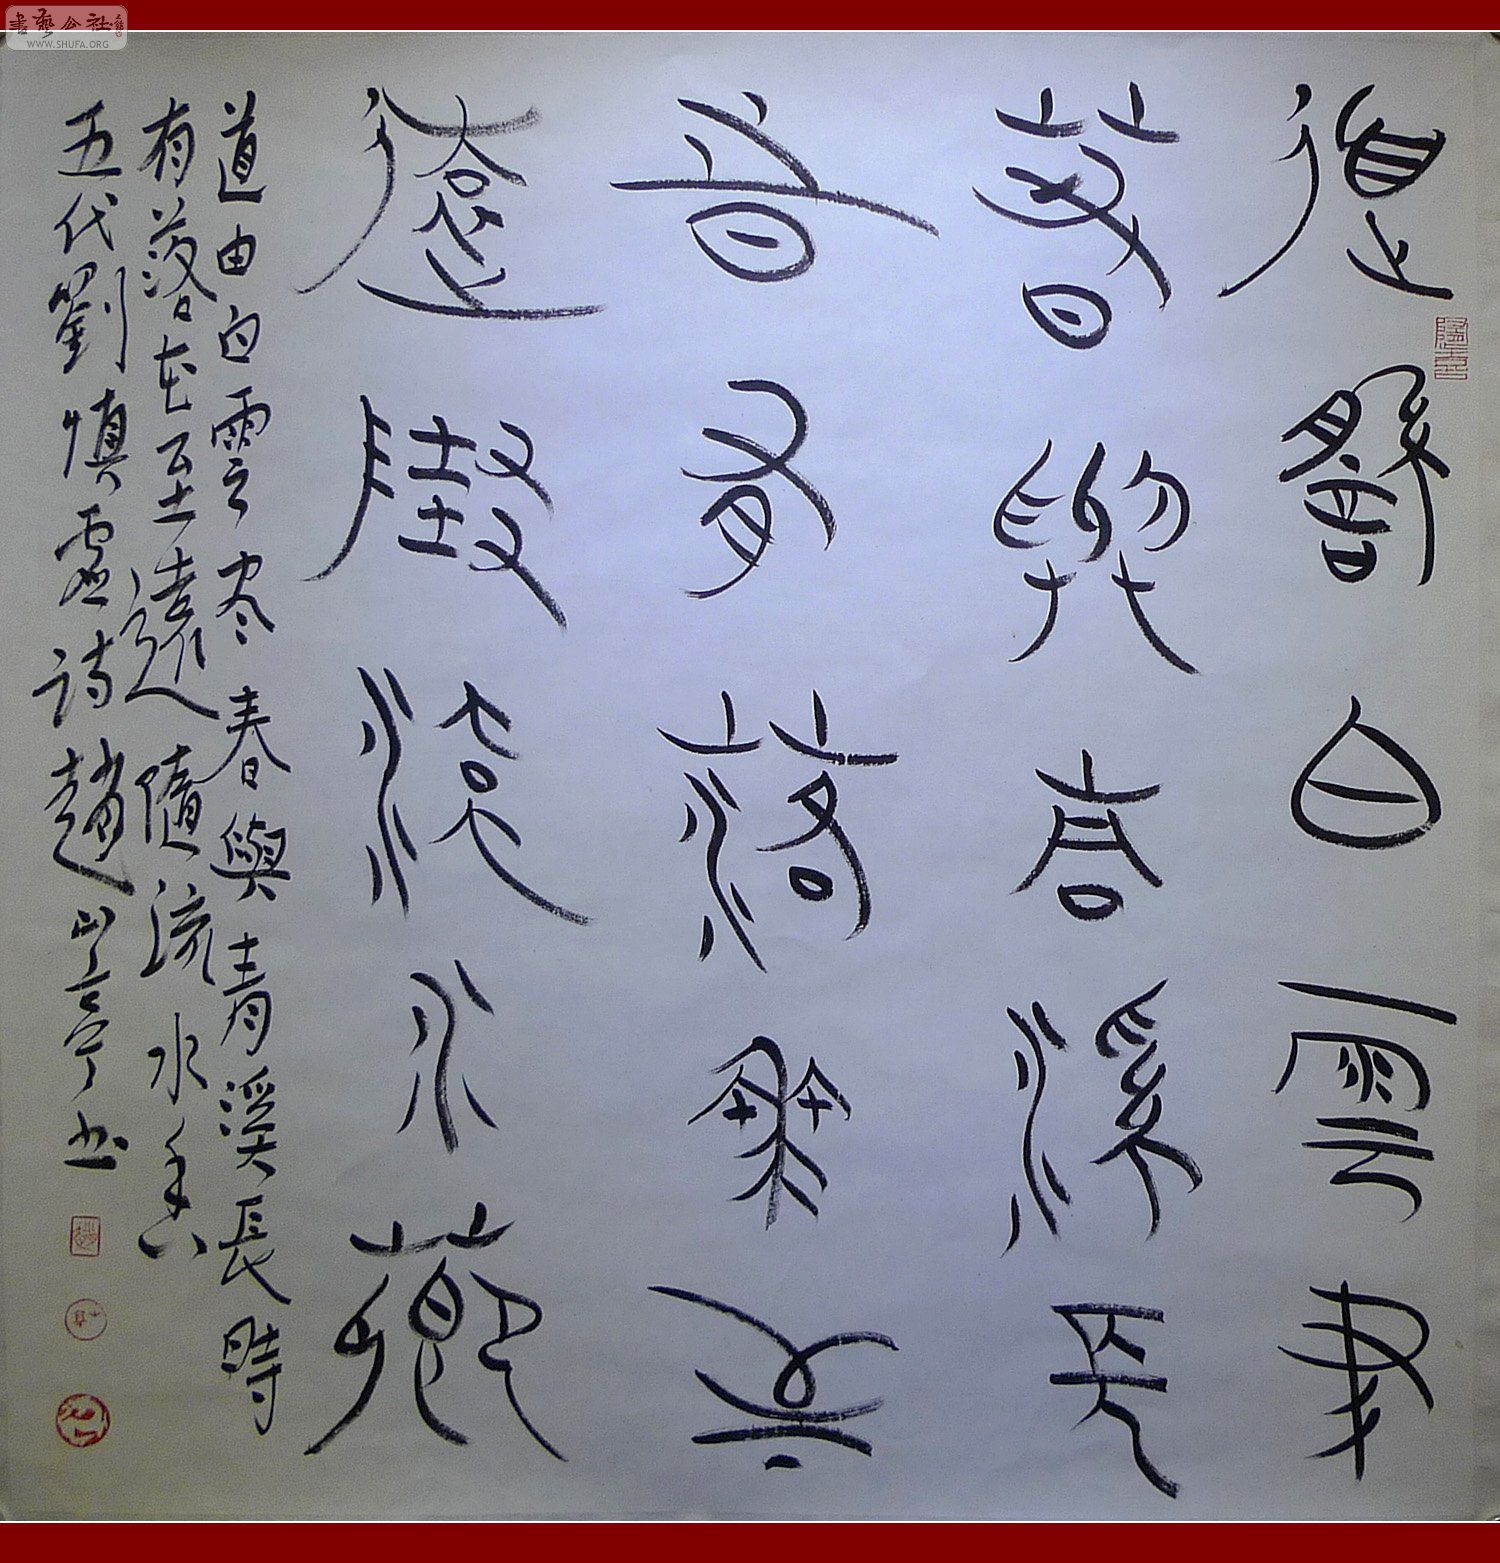 書藝公社
WWW.SHUFA.ORG
道繇白雲聿
春與青溪長
旹有落花至
遠隨流水薌
道由白雲尽春與青溪長時
有落花至遠隨流水香
五代劉慎虛詩趙书